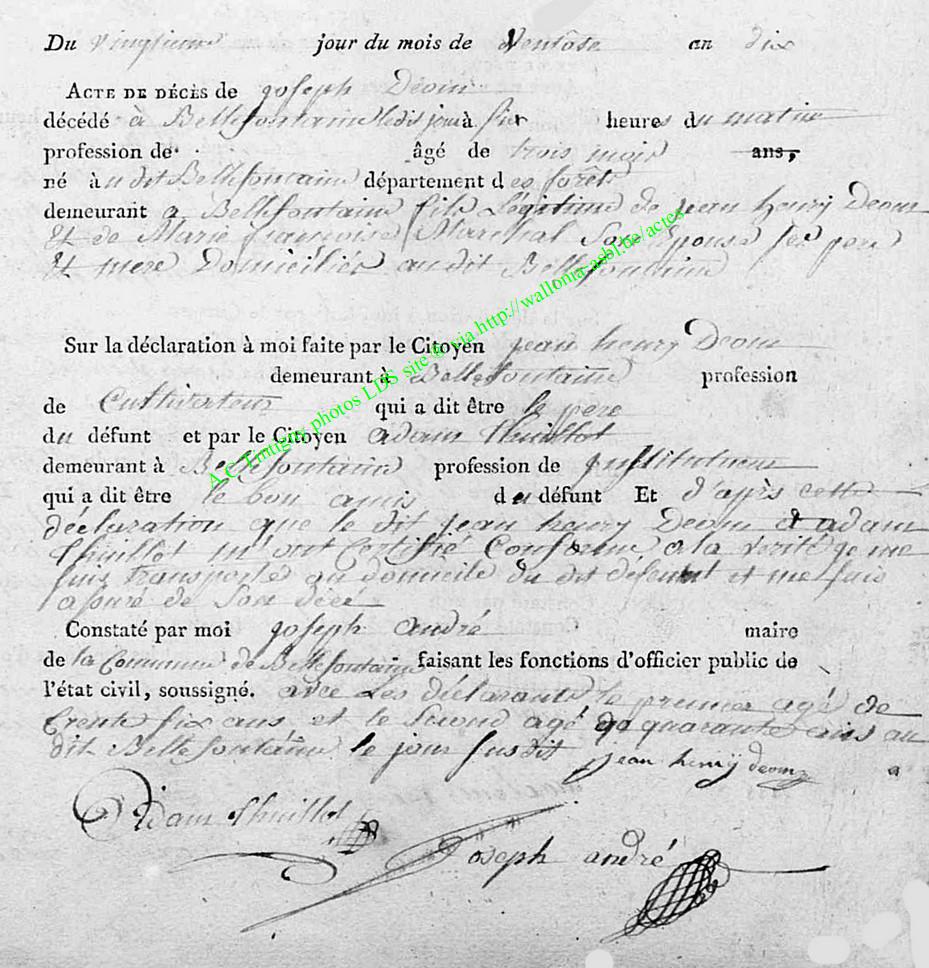 Du vingtieme jour du mois de Ventôse an dix
ACTE DE DÉCÈS de joseph Déom
décédé à Bellefontaine ledit jour à six heures du matin
profession de âgé de trois mois ans,
né à u dit Bellefontaine département des forêts
demeurant a Bellefontaine fils légitime de jean henry Deom
et de Marie françoise Marechal Son Epouse ses pere
et mere Domiciliés au dit Bellefontaine
Sur la déclaration à moi faite par le Citoyen jean henry Deom
demeurant à Bellefontaine profession
de Cultivateur qui a dit être le pere
du défunt et par le Citoyen adam thuillot
demeurant à Bellefontaine profession de jnstituteur
qui a dit être le bon amis du défunt Et d'après cette
déclaration que le dit jean henry Deom et adam
thuillot m'ont Certifié Conforme a la verité je me
suis transporté au domicile du dit défunt et me suis
assuré de Son décé
Constaté par moi joseph andré maire
de la Commune de Bellefontaine faisant les fonctions d'officier public de
l'état civil, soussigné. avec Les déclarants le premier agé de
trente six ans et le second agé de quarante ans au
dit Bellefontaine le jour susdit jean henrÿ deom
Adam thuillot
Joseph andré
A.C. Tintigny photos LDS site ® via http://wallonia-asbl.be/actes